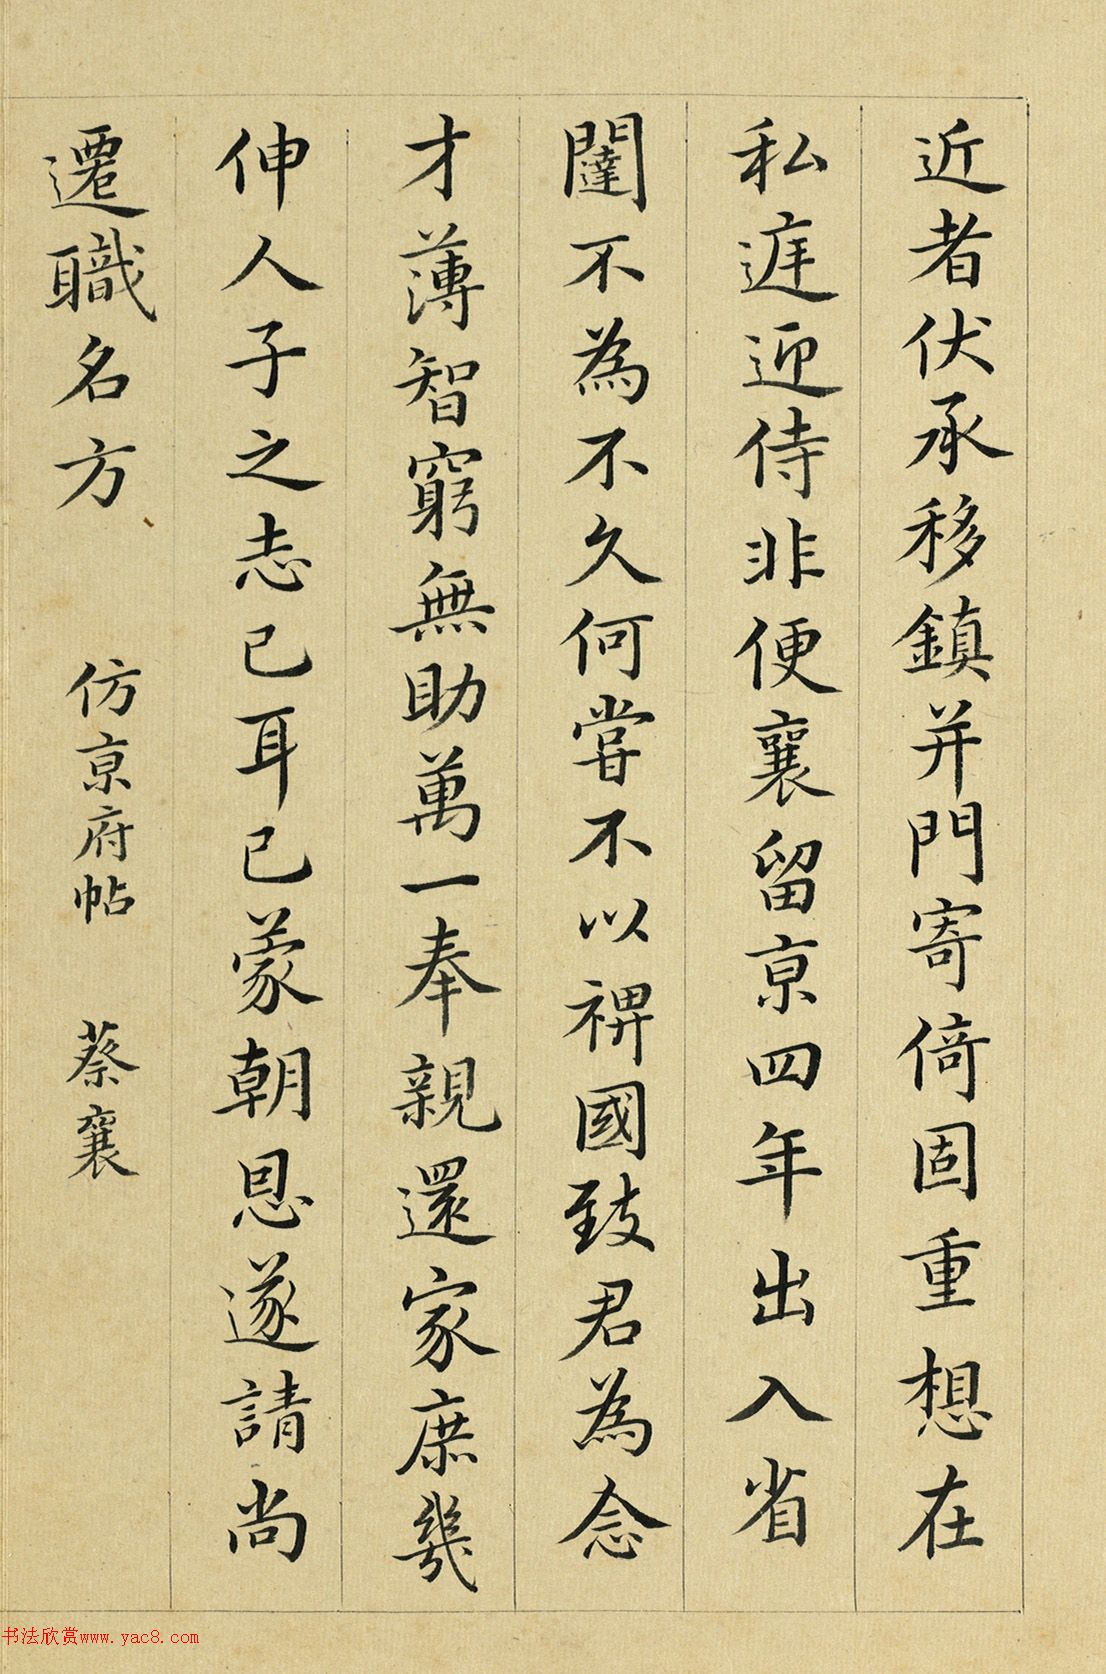 近者伏承移鎮并門寄倚固重想在
私庭迎侍非便襄留京四年出入省
闥不為不久何嘗不以裨國致君為念
才薄智窮無助萬一奉親還家庶幾
伸人子之志已耳已蒙朝恩遂請尚
遷職名方 仿京府帖 蔡襄
书法欣赏www.yac8.com